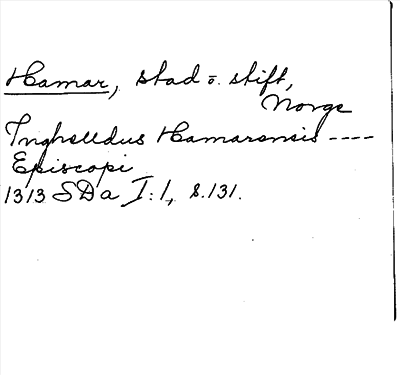 Hamar, stad o. stift,
Norge
Inghelldus Hamarensis ----
Episcopi
1313 SDa I:1, s.131.